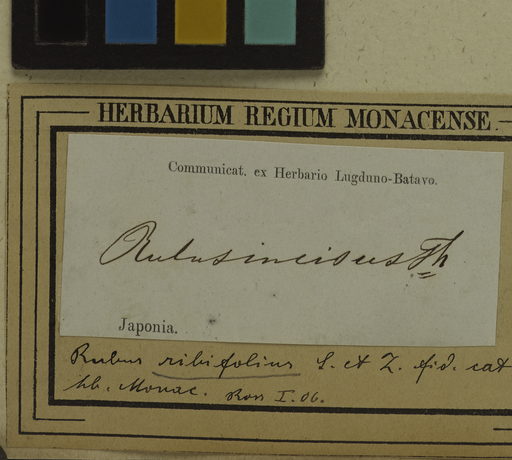 HERBARIUM REGIUM MONACENSE.
Communicat. ex Herbario Lugduno-Batavo.
Rubus incisus Th
Japonia.
Rubus ribifolius S. et Z. fid. cat
hb. Monac. Ross I. 06.